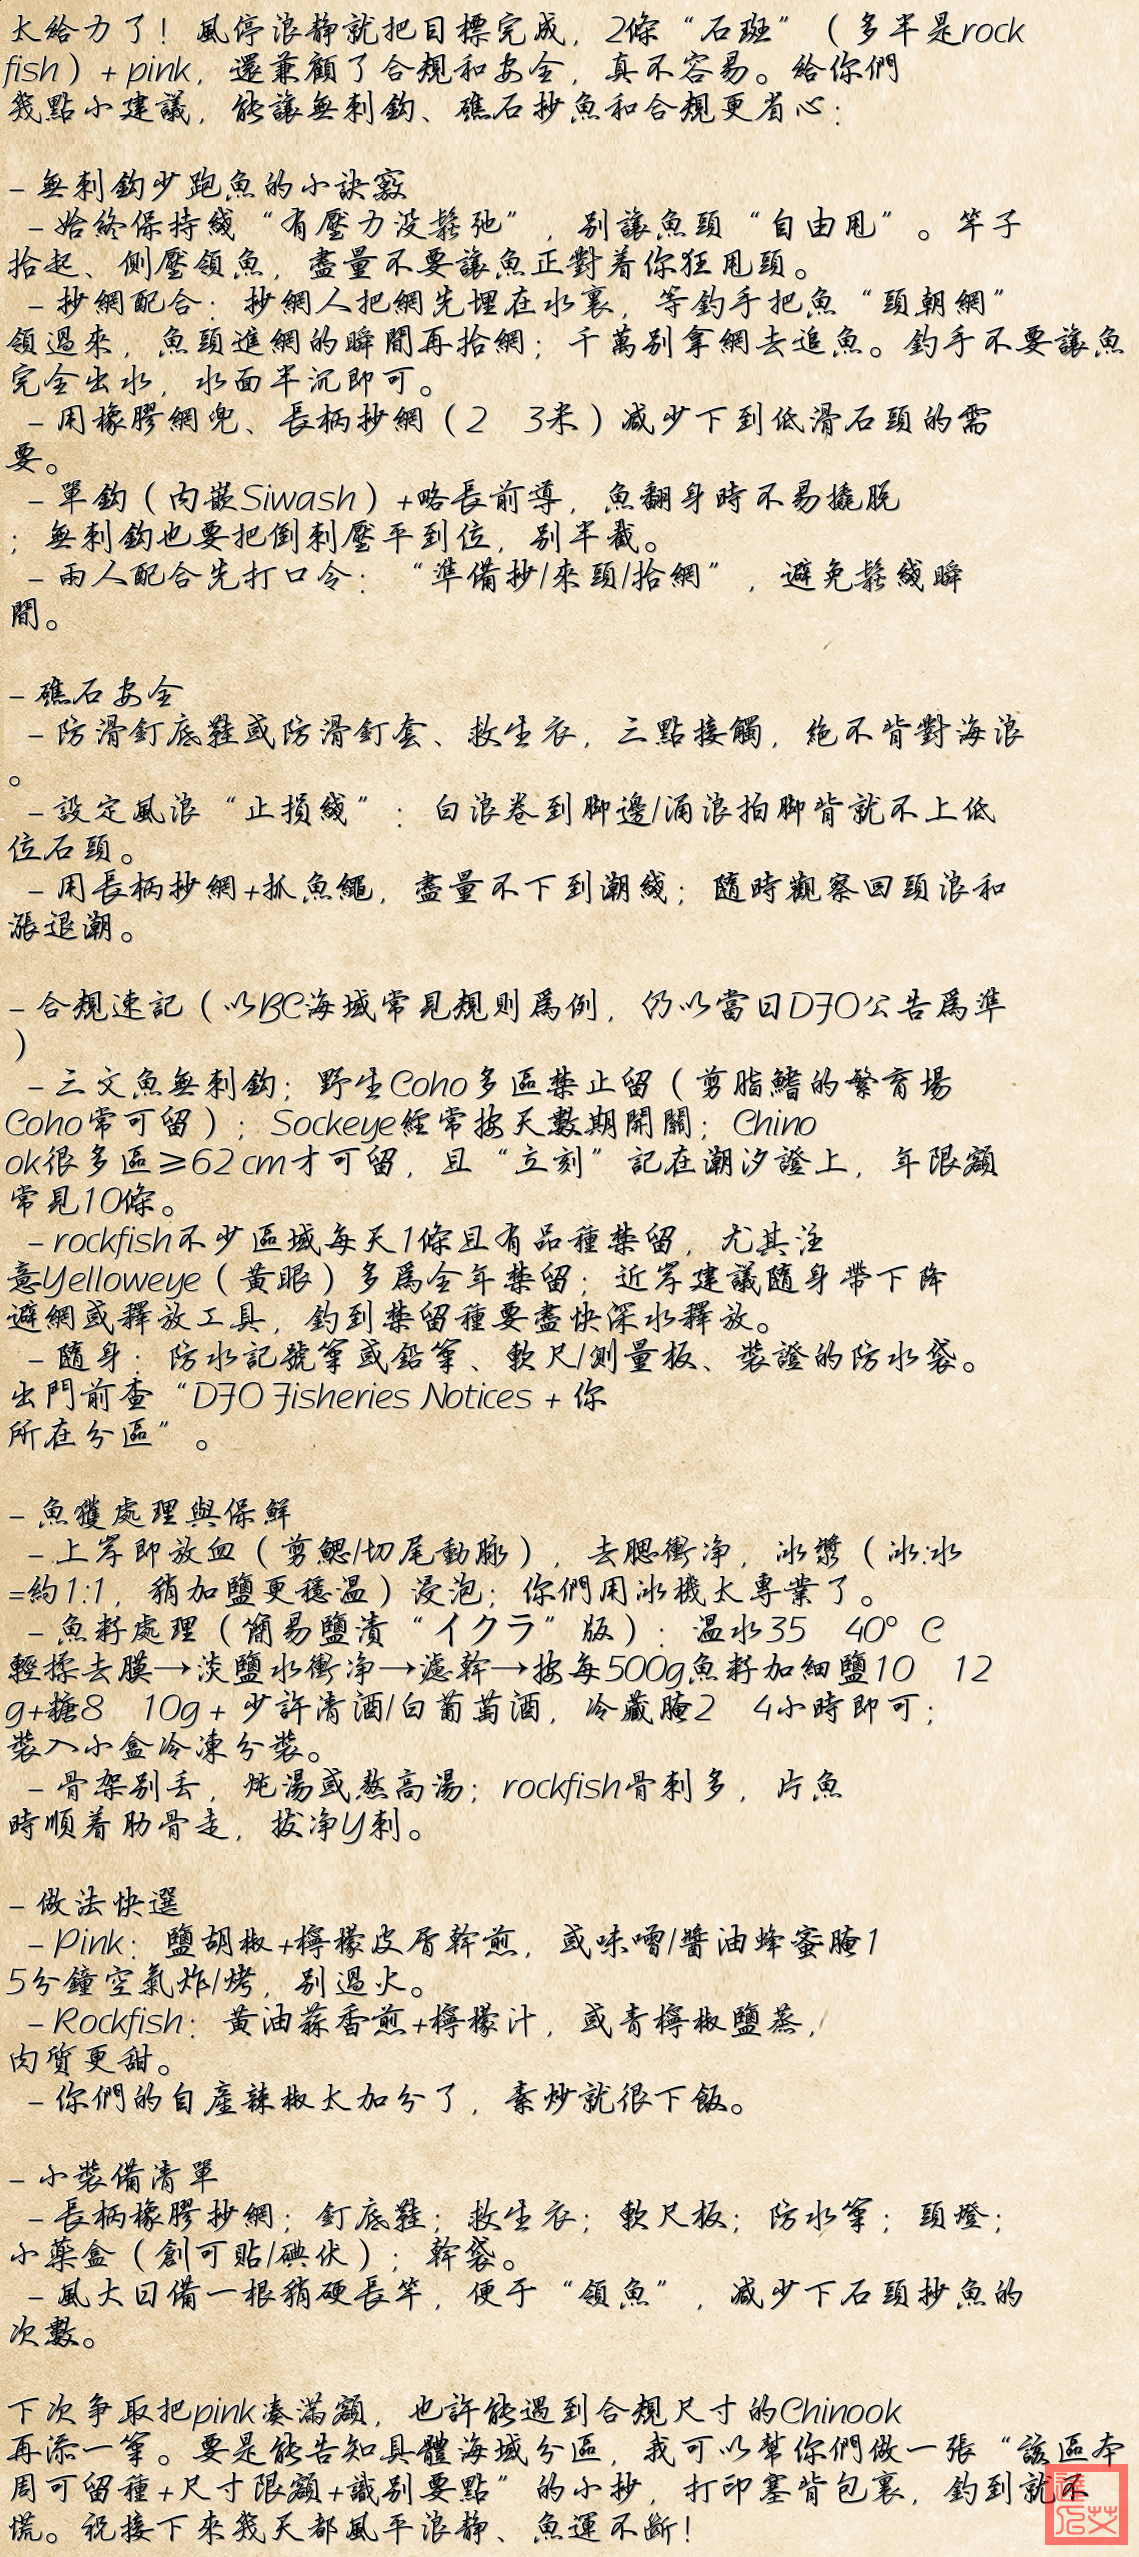 太給力了！風停浪静就把目標完成，2條“石斑”（多半是rock
fish）+ pink，還兼顧了合規和安全，真不容易。給你們
幾點小建議，能讓無刺鈎、礁石抄魚和合規更省心：
- 無刺鈎少跑魚的小訣竅
- 始終保持綫“有壓力没鬆弛”，别讓魚頭“自由甩”。竿子
抬起、側壓領魚，盡量不要讓魚正對着你狂甩頭。
- 抄網配合：抄網人把網先埋在水裏，等釣手把魚“頭朝網”
領過來，魚頭進網的瞬間再抬網；千萬别拿網去追魚。釣手不要讓魚
完全出水，水面半沉即可。
- 用橡膠網兜、長柄抄網（2 3米）减少下到低滑石頭的需
要。
- 單鈎（内嵌Siwash）+略長前導，魚翻身時不易撬脱
；無刺鈎也要把倒刺壓平到位，别半截。
- 兩人配合先打口令：“準備抄/來頭/抬網”，避免鬆綫瞬
間。
- 礁石安全
- 防滑釘底鞋或防滑釘套、救生衣，三點接觸，絶不背對海浪
。
- 設定風浪“止損綫”：白浪卷到脚邊/涌浪拍脚背就不上低
位石頭。
- 用長柄抄網+抓魚繩，盡量不下到潮綫；隨時觀察回頭浪和
漲退潮。
- 合規速記（以BC海域常見規則爲例，仍以當日DFO公告爲準
）
- 三文魚無刺鈎；野生Coho多區禁止留（剪脂鰭的繁育場
Coho常可留）；Sockeye經常按天數期開關；Chino
ok很多區≥62 cm才可留，且“立刻”記在潮汐證上，年限額
常見10條。
- rockfish不少區域每天1條且有品種禁留，尤其注
意Yelloweye（黄眼）多爲全年禁留；近岸建議隨身帶下降
避網或釋放工具，釣到禁留種要盡快深水釋放。
- 隨身：防水記號筆或鉛筆、軟尺/測量板、裝證的防水袋。
出門前查“DFO Fisheries Notices + 你
所在分區”。
- 魚獲處理與保鮮
- 上岸即放血（剪鰓/切尾動脉），去腮衝净，冰漿（冰:水
=約1:1，稍加鹽更穩温）浸泡；你們用冰機太專業了。
- 魚籽處理（簡易鹽漬“イクラ”版）：温水35 40°C
輕揉去膜→淡鹽水衝净→濾幹→按每500g魚籽加細鹽10 12
g+糖8 10g + 少許清酒/白葡萄酒，冷藏腌2 4小時即可；
裝入小盒冷凍分裝。
- 骨架别丢，炖湯或熬高湯；rockfish骨刺多，片魚
時順着肋骨走，拔净Y刺。
- 做法快選
- Pink：鹽胡椒+檸檬皮屑幹煎，或味噌/醬油蜂蜜腌1
5分鐘空氣炸/烤，别過火。
- Rockfish：黄油蒜香煎+檸檬汁，或青檸椒鹽蒸，
肉質更甜。
- 你們的自産辣椒太加分了，素炒就很下飯。
- 小裝備清單
- 長柄橡膠抄網；釘底鞋；救生衣；軟尺板；防水筆；頭燈；
小藥盒（創可貼/碘伏）；幹袋。
- 風大日備一根稍硬長竿，便于“領魚”，减少下石頭抄魚的
次數。
下次争取把pink凑滿額，也許能遇到合規尺寸的Chinook
再添一筆。要是能告知具體海域分區，我可以幫你們做一張“該區本
周可留種+尺寸限額+識别要點”的小抄，打印塞背包裏，釣到就不
慌。祝接下來幾天都風平浪静、魚運不斷！